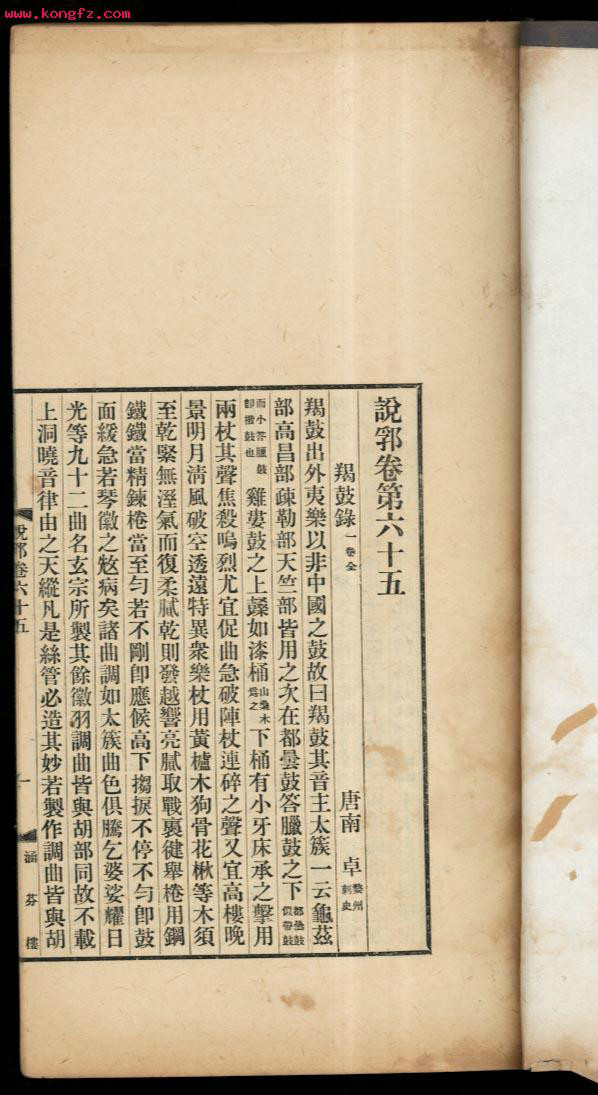 www.kongfz.com
說郛卷第六十五
羯鼓錄 一卷全 唐南 卓 婺州刺史
羯鼓出外夷樂以非中國之鼓故曰羯鼓其音主太簇一云龜茲
部高昌部疎勒部天竺部皆用之次在都曇鼓答臘鼓之下 都曇鼓似腰鼓
而小答臘鼓卽揩鼓也 雞婁鼓之上鼞如漆桶 山桑木爲之 下桶有小牙床承之擊用
兩杖其聲焦殺嗚烈尤宜促曲急破陣杖連碎之聲又宜高樓晚
景明月淸風破空透遠特異衆樂杖用黃櫨木狗骨花楸等木須
至乾緊無溼氣而復柔膩乾則發越響亮膩取戰裏徤舉棬用鋼
鐵鐵當精鍊棬當至勻若不剛卽應候高下搊捩不停不勻卽鼓
面緩急若琴徽之㢮病矣諸曲調如太簇曲色俱騰乞婆娑耀日
光等九十二曲名玄宗所製其餘徽羽調曲皆與胡部同故不載
上洞曉音律由之天縱凡是絲管必造其妙若製作調曲皆與胡
說郛卷六十五
一
涵芬樓